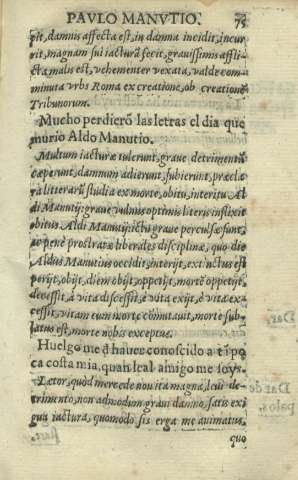 PAVLO MANVTIO. 75
rit, damnis affecta est, in damna incidit, incur
rit, magnam sui iacturã fecit, grauissimis affli-
cta malis est, vehementer vexata, valde com-
minuta vrbs Roma ex creatione, ob creationẽ
Tribunorum.
Mucho perdierõ las letras el dia que
murio Aldo Manutio.
Multum iacturæ tulerunt, graue detrimentũ
cæperunt, damnum adierunt, subierunt, præcla
ra litterarũ studia ex morte, obitu, interitu Al
di Manutij: graue vulnus optimis literis inflixit
obitus Aldi Manutij: ictu graue perculsæ sunt,
ac penè prostratæ liberales disciplinæ, quo die
Aldus Manutius occidit, interijt, extinctus est
perijt, obijt, diem obijt, oppetijt, mortẽ oppetijt,
decessit, à vita discessit, è vita exijt, è vita ex-
cessit, vitam cum morte cõmutauit, morte sub-
latus est, morte nobis ereptus.
Huelgo me q̃ hauer conoscido a ti po
ca costa mia, quan leal amigo me soys
Lætor, quòd mercede non ita magna, leui de-
trimento, non admodum graui damno, satis exi
gua iactura, quomodo sis erga me animatus,
quo
Dar.
Dar de
palos.